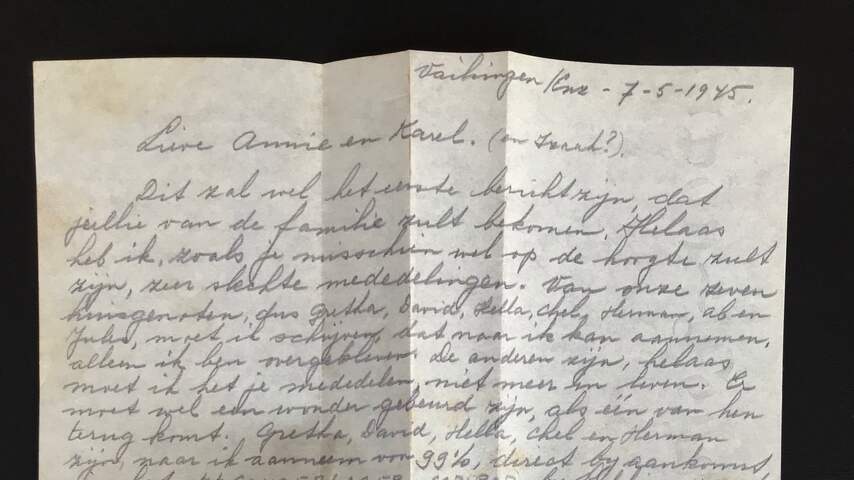 Vaihingen/Enz - 7-5-1945.
Lieve Annie en Karel. (en Izaak?).
Dit zal wel het eerste bericht zijn, dat
jullie van de familie zult bekomen. Helaas
heb ik, zoals je misschien wel op de hoogte zult
zijn, zeer slechte mededelingen. Van onze zeven
huisgenoten, dus Gretha, David, Hella, Chel, Herman, ab en
Jules, moet ik schrijven, dat naar ik kan aannemen,
alleen ik ben overgebleven. De anderen zijn, helaas
moet ik het je mededelen, niet meer in leven. Er
moet wel een wonder gebeurd zijn, als één van hen
terug komt. Gretha, David, Hella, Chel en Herman
zijn, naar ik aanneem voor 99%, direct bij aankomst